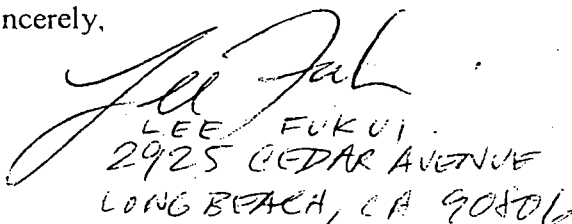 ncerely,
Lee Fuk
LEE FUKUI
2925 CEDAR AVENUE
LONG BEACH, CA 90806